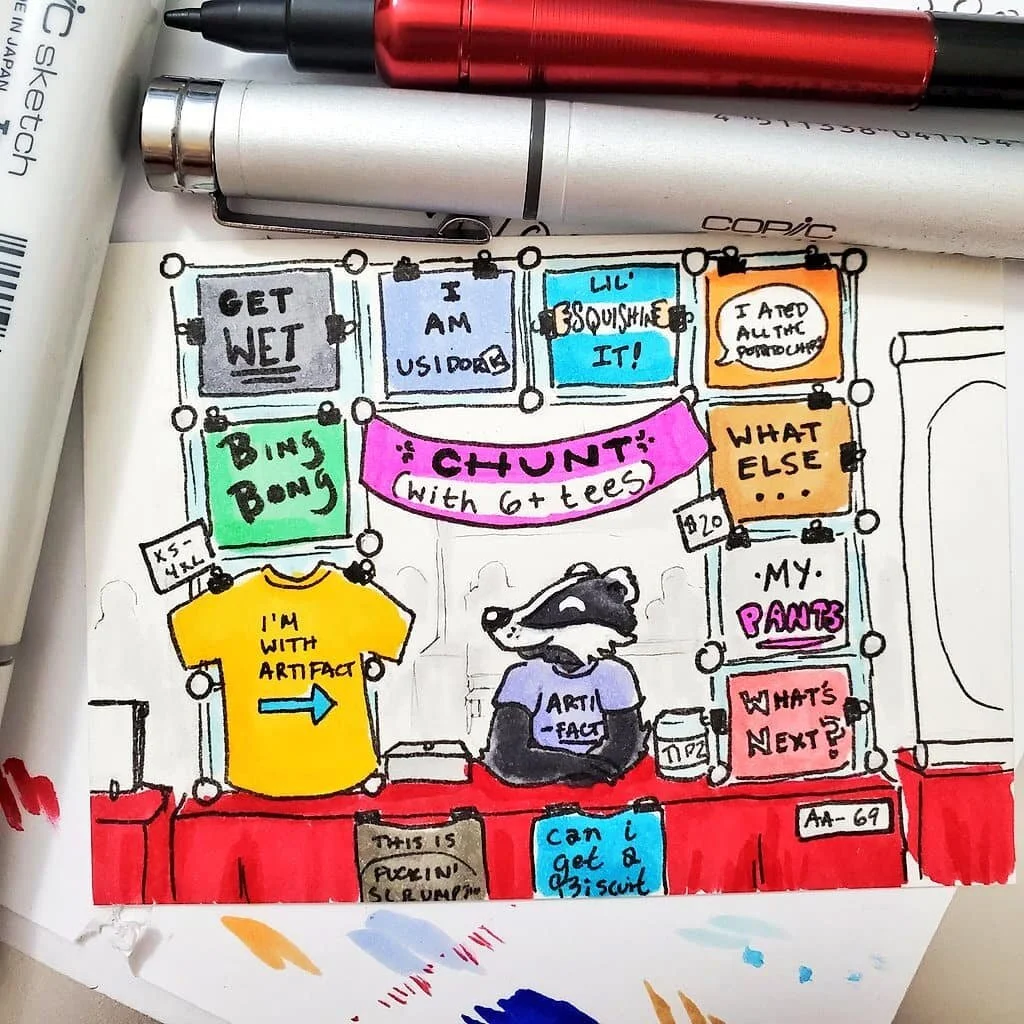 iC sketch
MADE IN JAPAN
COPIC
GET
WET
I
AM
USIDORE
LIL'
SQUISHIE
IT!
I ATED
ALL THE
POTATO CHIPS
BING
BONG
CHUNT
(with 6+ tees)
WHAT
ELSE
...
XS-
4XL
$20
I'M
WITH
ARTIFACT
MY
PANTS
ARTI
-FACT
TIPZ
WHAT'S
NEXT?
AA-69
THIS IS
FUCKIN'
SCRUMP
can i
get a
Biscuit